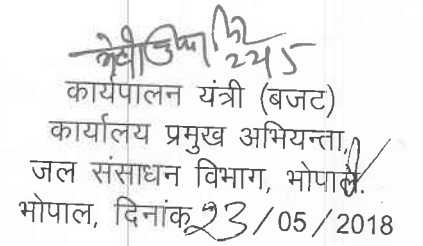 225
कार्यपालन यंत्री (बजट)
कार्यालय प्रमुख अभियन्ता,
जल संसाधन विभाग, भोपाल.
भोपाल, दिनांक 23 / 05 / 2018